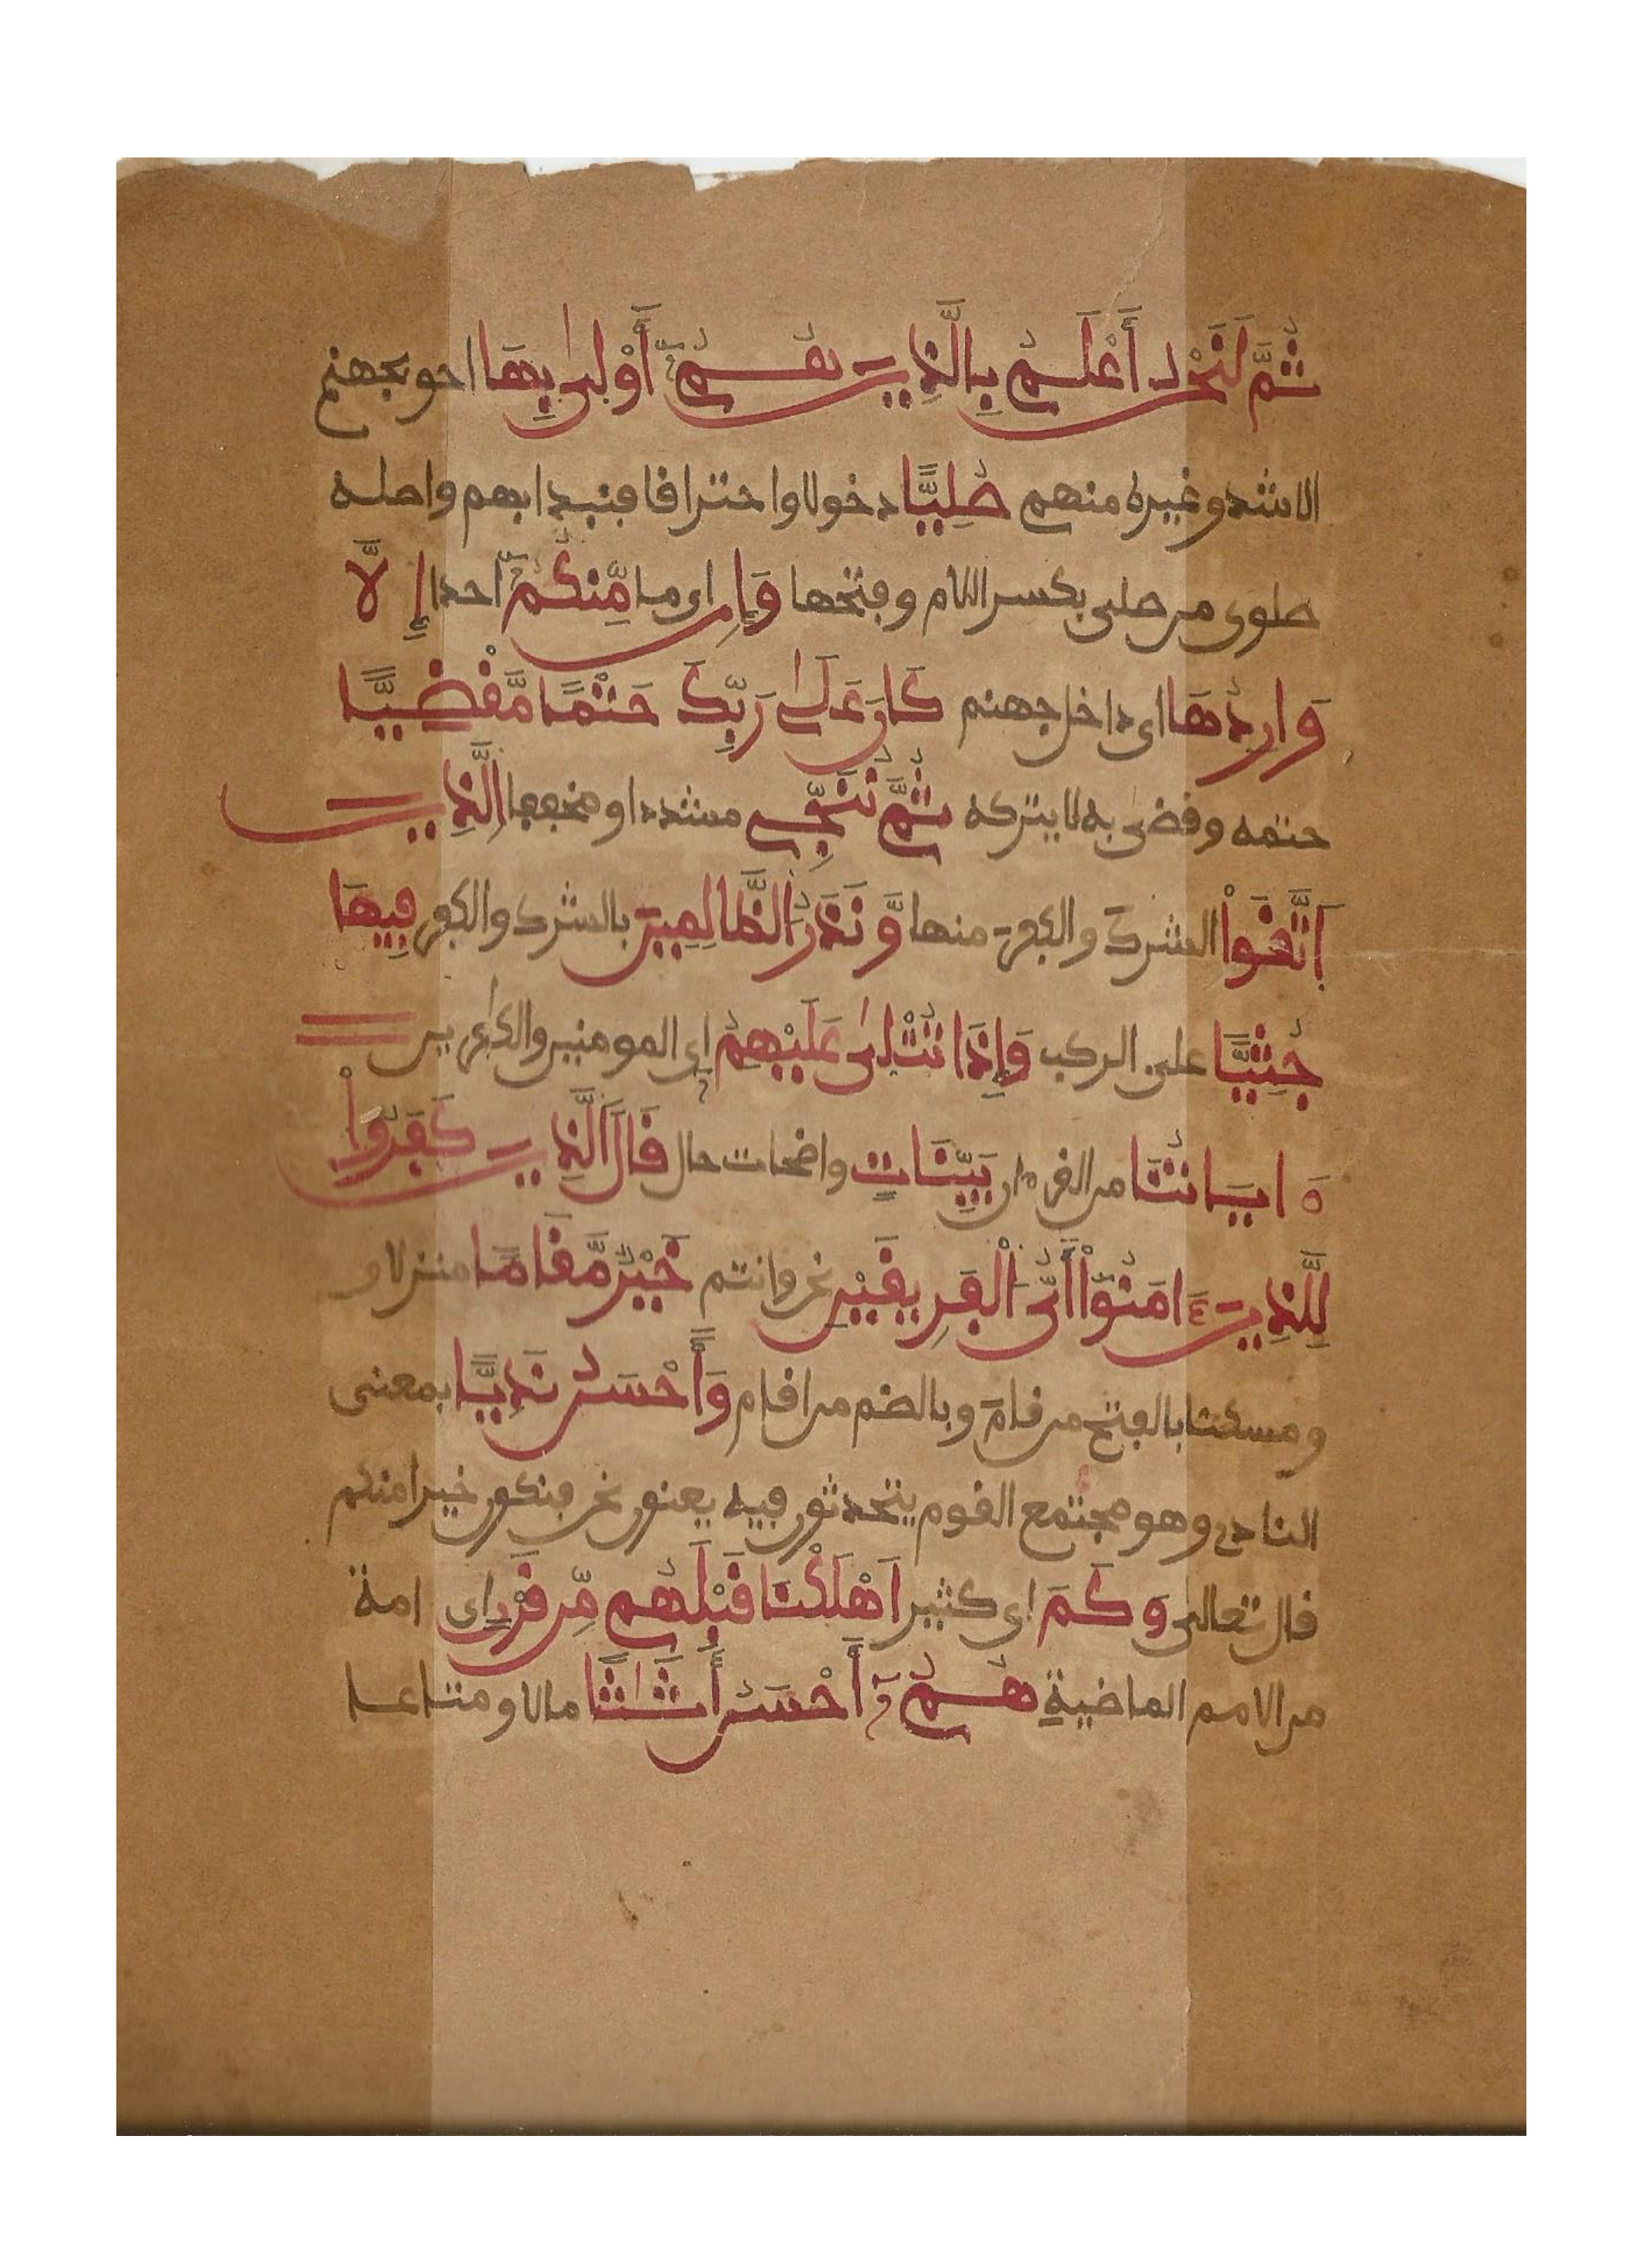 ثُمَّ لَنَحْنُ أَعْلَمُ بِالَّذِينَ هُمُ أَوْلَىٰ بِهَا احق بجهنم
الاشد وغيره منهم صُلِيًّا دخولا واحتراقا فنبدا بهم واصله
صلوى من صلى بكسر اللام وفتحها وَإِن اى ما مِّنكُمُ احدا إِلَّا
وَارِدُهَا اى داخل جهنم كَانَ عَلَىٰ رَبِّكَ حَتْمًا مَّقْضِيًّا
حتمه وقضى به لا يتركه ثُمَّ نُنَجِّي مشددا ومخففا الَّذِينَ
اتَّقَواْ الشرك والكفر منها وَّنَذَرُ الظَّالِمِينَ بالشرك والكفر فِيهَا
جُثِيًّا على الركب وَإِذَا تُتْلَىٰ عَلَيْهِمُ اى المومنين والكافرين
ءَايَاتُنَا من القرءان بَيِّنَاتٍ واضحات حال قَالَ الَّذِينَ كَفَرُواْ
لِلَّذِينَ ءَامَنُواْ أَيُّ الْفَرِيقَيْنِ نحن وانتم خَيْرٌ مَّقَامًا منزلا و
ومسكنا بالفتح من قام وبالضم من اقام وَأَحْسَنُ نَدِيًّا بمعنى
النادى وهو مجتمع القوم يتحدثون فيه يعنون نحن فنكون خيرا منكم
قال تعالى وَكَمَ اى كثير اَهْلَكْنَا قَبْلَهُم مِّن قَرْنٍ اى امة
من الامم الماضية هُمُ أَحْسَنُ أَثَاثًا مالا ومتاعا